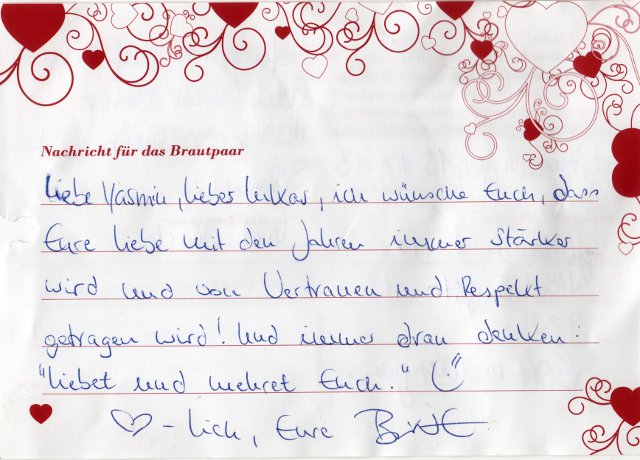 Nachricht für das Brautpaar
Liebe Yasmin, lieber Lukas, ich wünsche Euch, dass
Eure Liebe mit den Jahren immer stärker
wird und von Vertrauen und Respekt
getragen wird! Und immer dran denken:
"Liebet und mehret Euch." :)
♡-lich, Eure Birte